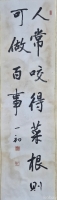 人常咬得菜根則
可做百事
一和